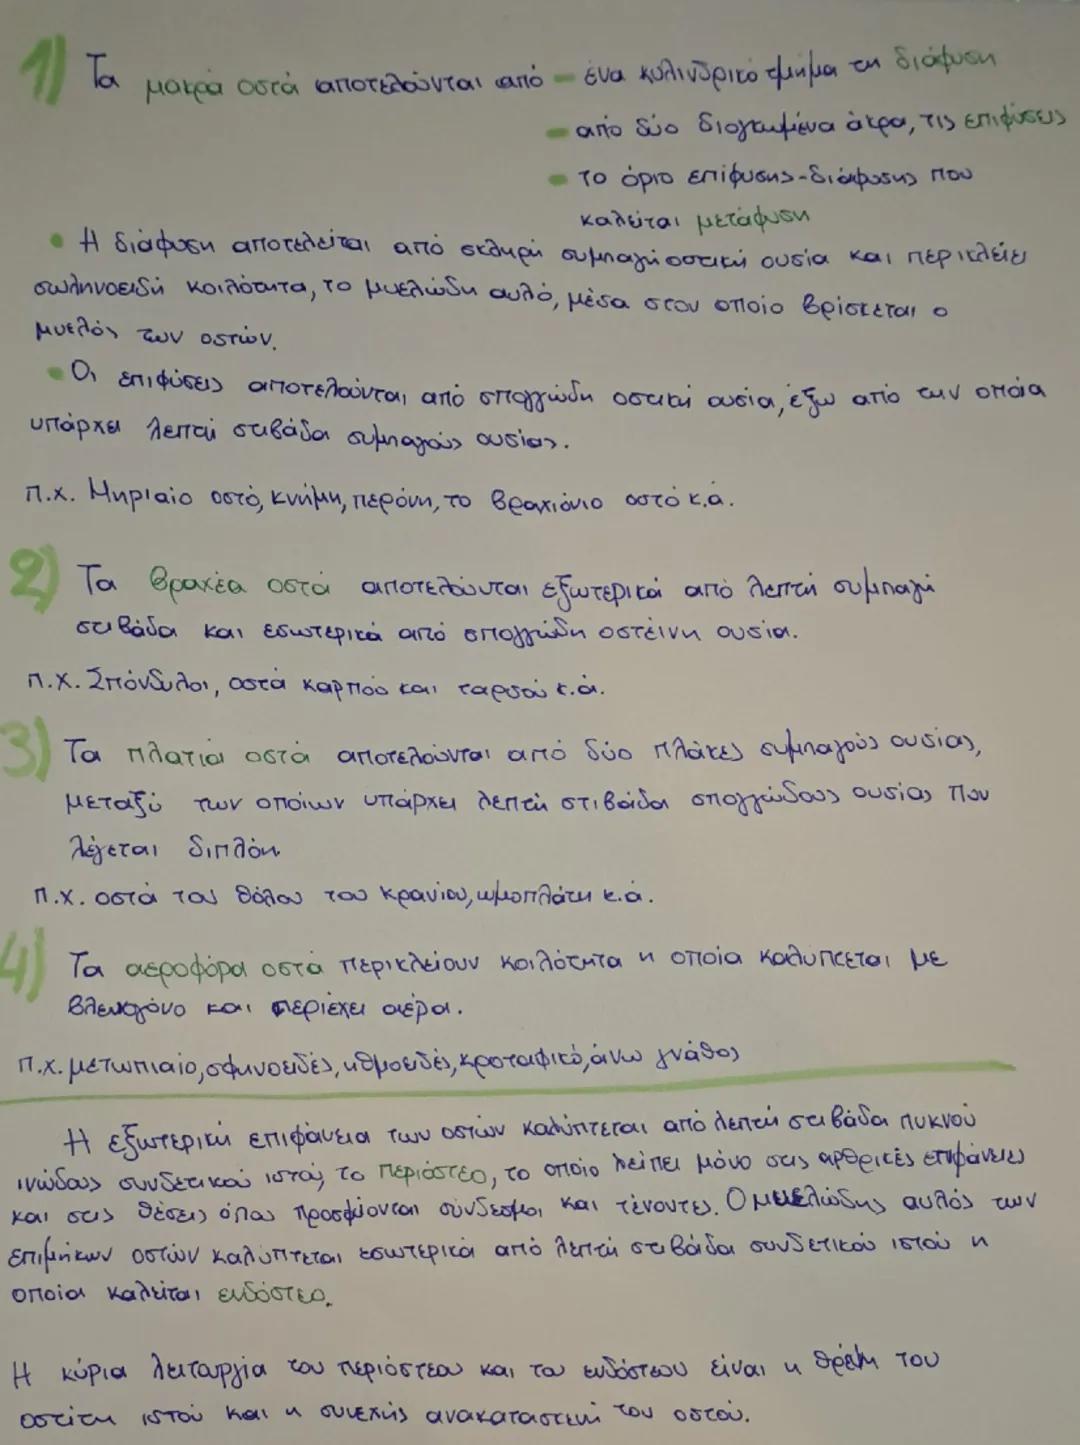 1) Τα μακρά οστά αποτελούνται από - ένα κυλινδρικό τμήμα τη διάφυση
- από δύο διογκωμένα άκρα, τις επιφύσεις
- το όριο επίφυσης-διάφυσης που
καλείται μετάφυση
• Η διάφυση αποτελείται από σκληρή συμπαγή οστική ουσία και περικλείει
σωληνοειδή κοιλότητα, το μυελώδη αυλό, μέσα στον οποίο βρίσκεται ο
μυελός των οστών.
• Οι επιφύσεις αποτελούνται από σπογγώδη οστική ουσία, έξω από την οποία
υπάρχει λεπτή στιβάδα συμπαγούς ουσίας.
π.χ. Μηριαίο οστό, κνήμη, περόνη, το βραχιόνιο οστό κ.ά.
2) Τα βραχέα οστά αποτελούνται εξωτερικά από λεπτή συμπαγή
στιβάδα και εσωτερικά από σπογγώδη οστέινη ουσία.
π.χ. Σπόνδυλοι, οστά καρπού και ταρσού κ.ά.
3) Τα πλατιά οστά αποτελούνται από δύο πλάκες συμπαγούς ουσίας,
μεταξύ των οποίων υπάρχει λεπτή στιβάδα σπογγώδους ουσίας που
λέγεται διπλόη
π.χ. οστά του θόλου του κρανίου, ωμοπλάτη κ.ά.
4) Τα αεροφόρα οστά περικλείουν κοιλότητα η οποία καλύπτεται με
βλεννογόνο και περιέχει αέρα.
π.χ. μετωπιαίο, σφηνοειδές, ηθμοειδές, κροταφικό, άνω γνάθος
Η εξωτερική επιφάνεια των οστών καλύπτεται από λεπτή στιβάδα πυκνού
ινώδους συνδετικού ιστού, το περιόστεο, το οποίο λείπει μόνο στις αρθρικές επιφάνειες
και στις θέσεις όπου προσφύονται σύνδεσμοι και τένοντες. Ο μυελώδης αυλός των
επιμήκων οστών καλύπτεται εσωτερικά από λεπτή στιβάδα συνδετικού ιστού η
οποία καλείται ενδόστεο.
Η κύρια λειτουργία του περιόστεου και του ενδόστεου είναι η θρέψη του
οστίτη ιστού και η συνεχής ανακατασκευή του οστού.